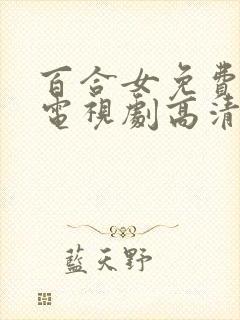 百合女免費
電視劇高清
藍天野